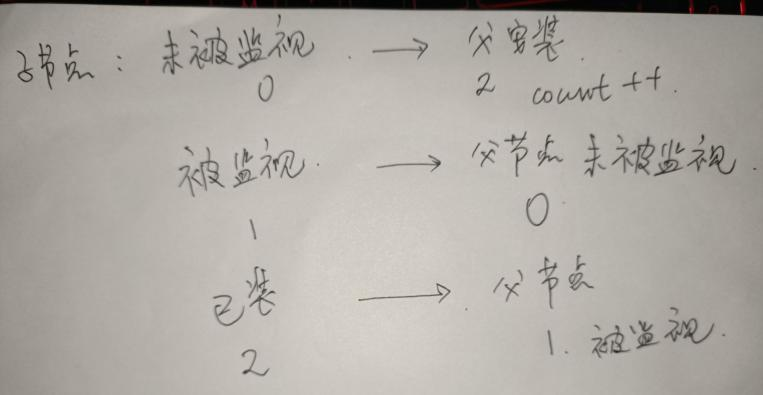 子节点：未被监视 → 父安装
0 2 count++.
被监视. → 父节点 未被监视.
1 0
已装 → 父节点
2 1. 被监视.